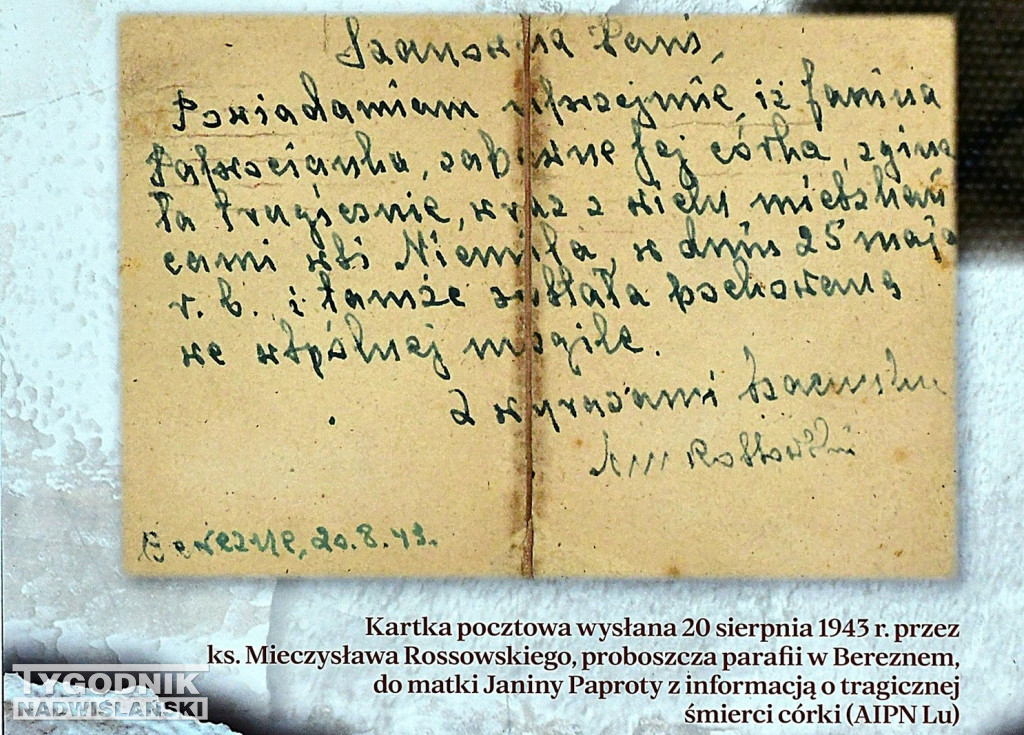 Szanowna Pani,
Powiadamiam uprzejmie, iż Janina
Paprocianka, zapewne Jej córka, zginę
ła tragicznie, wraz z wielu mieszkań
cami wsi Niemila, w dniu 25 maja
r. b. i tamże została pochowaną
we wspólnej mogile.
Z wyrazami szacunku
Rossowski
Berezne, 20.8.43.
Kartka pocztowa wysłana 20 sierpnia 1943 r. przez
ks. Mieczysława Rossowskiego, proboszcza parafii w Bereznem,
do matki Janiny Paproty z informacją o tragicznej
śmierci córki (AIPN Lu)
TYGODNIK
NADWIŚLAŃSKI